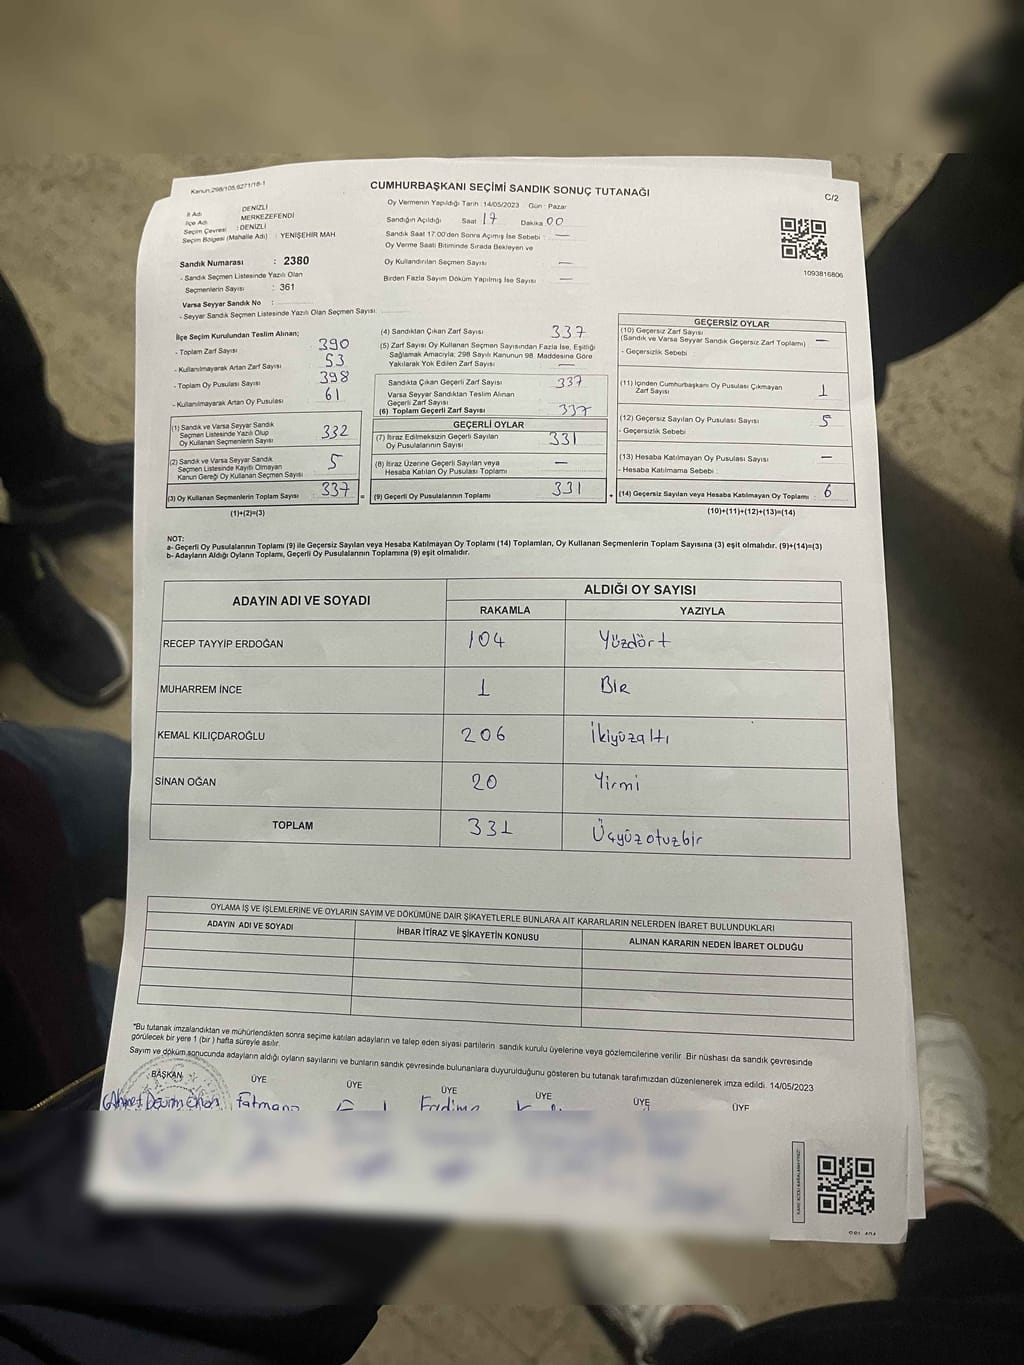 Kanun:298/105,6271/18-1
CUMHURBAŞKANI SEÇİMİ SANDIK SONUÇ TUTANAĞI
C/2
İl Adı DENİZLİ
İlçe Adı MERKEZEFENDİ
Seçim Çevresi : DENİZLİ
Seçim Bölgesi (Mahalle Adı) : YENİŞEHİR MAH
Sandık Numarası : 2380
- Sandık Seçmen Listesinde Yazılı Olan
Seçmenlerin Sayısı : 361
Varsa Seyyar Sandık No :
- Seyyar Sandık Seçmen Listesinde Yazılı Olan Seçmen Sayısı:
Oy Vermenin Yapıldığı Tarih :14/05/2023 Gün : Pazar
Sandığın Açıldığı Saat 17 Dakika 00
Sandık Saat 17.00'den Sonra Açılmış İse Sebebi : —
Oy Verme Saati Bitiminde Sırada Bekleyen ve
Oy Kullandırılan Seçmen Sayısı —
Birden Fazla Sayım Döküm Yapılmış İse Sayısı —
1093816806
İlçe Seçim Kurulundan Teslim Alınan;
- Toplam Zarf Sayısı 390
- Kullanılmayarak Artan Zarf Sayısı 53
- Toplam Oy Pusulası Sayısı 398
- Kullanılmayarak Artan Oy Pusulası 61
(1) Sandık ve Varsa Seyyar Sandık
Seçmen Listesinde Yazılı Olup
Oy Kullanan Seçmenlerin Sayısı 332
(2) Sandık ve Varsa Seyyar Sandık
Seçmen Listesinde Kayıtlı Olmayan
Kanun Gereği Oy Kullanan Seçmen Sayısı 5
(3) Oy Kullanan Seçmenlerin Toplam Sayısı 337 =
(1)+(2)=(3)
(4) Sandıktan Çıkan Zarf Sayısı 337
(5) Zarf Sayısı Oy Kullanan Seçmen Sayısından Fazla İse, Eşitliği
Sağlamak Amacıyla; 298 Sayılı Kanunun 98. Maddesine Göre
Yakılarak Yok Edilen Zarf Sayısı —
Sandıkta Çıkan Geçerli Zarf Sayısı 337
Varsa Seyyar Sandıktan Teslim Alınan
Geçerli Zarf Sayısı
(6) Toplam Geçerli Zarf Sayısı 337
GEÇERLİ OYLAR
(7) İtiraz Edilmeksizin Geçerli Sayılan
Oy Pusulalarının Sayısı 331
(8) İtiraz Üzerine Geçerli Sayılan veya
Hesaba Katılan Oy Pusulası Toplamı —
(9) Geçerli Oy Pusulalarının Toplamı 331 +
GEÇERSİZ OYLAR
(10) Geçersiz Zarf Sayısı
(Sandık ve Varsa Seyyar Sandık Geçersiz Zarf Toplamı) —
- Geçersizlik Sebebi
(11) İçinden Cumhurbaşkanı Oy Pusulası Çıkmayan
Zarf Sayısı 1
(12) Geçersiz Sayılan Oy Pusulası Sayısı 5
- Geçersizlik Sebebi :
(13) Hesaba Katılmayan Oy Pusulası Sayısı —
- Hesaba Katılmama Sebebi :
(14) Geçersiz Sayılan veya Hesaba Katılmayan Oy Toplamı : 6
(10)+(11)+(12)+(13)=(14)
NOT:
a- Geçerli Oy Pusulalarının Toplamı (9) ile Geçersiz Sayılan veya Hesaba Katılmayan Oy Toplamı (14) Toplamları, Oy Kullanan Seçmenlerin Toplam Sayısına (3) eşit olmalıdır. (9)+(14)=(3)
b- Adayların Aldığı Oyların Toplamı, Geçerli Oy Pusulalarının Toplamına (9) eşit olmalıdır.
ADAYIN ADI VE SOYADI ALDIĞI OY SAYISI
RAKAMLA YAZIYLA
RECEP TAYYİP ERDOĞAN 104 Yüzdört
MUHARREM İNCE 1 Bir
KEMAL KILIÇDAROĞLU 206 İkiyüzaltı
SİNAN OĞAN 20 Yirmi
TOPLAM 331 Üçyüzotuzbir
OYLAMA İŞ VE İŞLEMLERİNE VE OYLARIN SAYIM VE DÖKÜMÜNE DAİR ŞİKAYETLERLE BUNLARA AİT KARARLARIN NELERDEN İBARET BULUNDUKLARI
ADAYIN ADI VE SOYADI İHBAR İTİRAZ VE ŞİKAYETİN KONUSU ALINAN KARARIN NEDEN İBARET OLDUĞU
*Bu tutanak imzalandıktan ve mühürlendikten sonra seçime katılan adayların ve talep eden siyasi partilerin sandık kurulu üyelerine veya gözlemcilerine verilir. Bir nüshası da sandık çevresinde
görülecek bir yere 1 (bir) hafta süreyle asılır.
Sayım ve döküm sonucunda adayların aldığı oyların sayılarını ve bunların sandık çevresinde bulunanlara duyurulduğunu gösteren bu tutanak tarafımızdan düzenlenerek imza edildi. 14/05/2023
BAŞKAN ÜYE ÜYE ÜYE ÜYE ÜYE ÜYE
Ahmet Fatmana Fadime